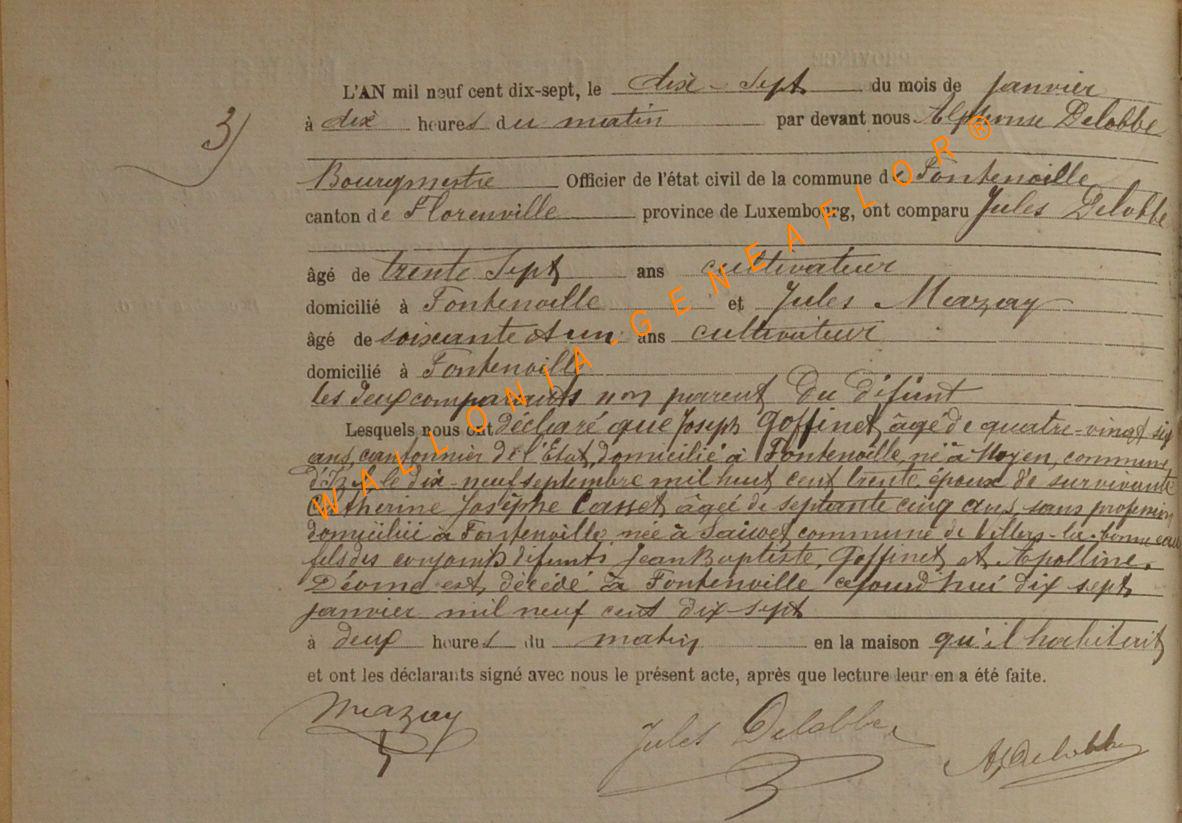 3)
L'AN mil neuf cent dix-sept, le dix-sept du mois de janvier
à dix heures du matin par devant nous Alphonse Delobbe
Bourgmestre Officier de l'état civil de la commune de Fontenoille
canton de Florenville province de Luxembourg, ont comparu Jules Delobbe
âgé de trente sept ans cultivateur
domicilié à Fontenoille et Jules Mazay
âgé de soixante et un ans cultivateur
domicilié à Fontenoille
les deux comparants non parent du défunt
Lesquels nous ont déclaré que Joseph Goffinet, âgé de quatre-vingt six
ans, cantonnier de l'Etat, domicilié à Fontenoille né à Moyen, commune
d'Izel le dix-neuf septembre mil huit cent trente époux de survivante
Catherine Josèphe Casset âgée de septante cinq ans, sans profession
domiciliée à Fontenoille, née à Saiwet commune de Villers-la-bonne-eau
fils des conjoints défunts Jean Baptiste, Goffinet et Apolline
est décédé à Fontenoille cejourd'hui dix sept
janvier mil neuf cent dix-sept
à deux heures du matin en la maison qu'il habitait
et ont les déclarants signé avec nous le présent acte, après que lecture leur en a été faite.
Mazay
Jules Delobbe
A. Delobbe
WALLONIA-GENEAFLOR®